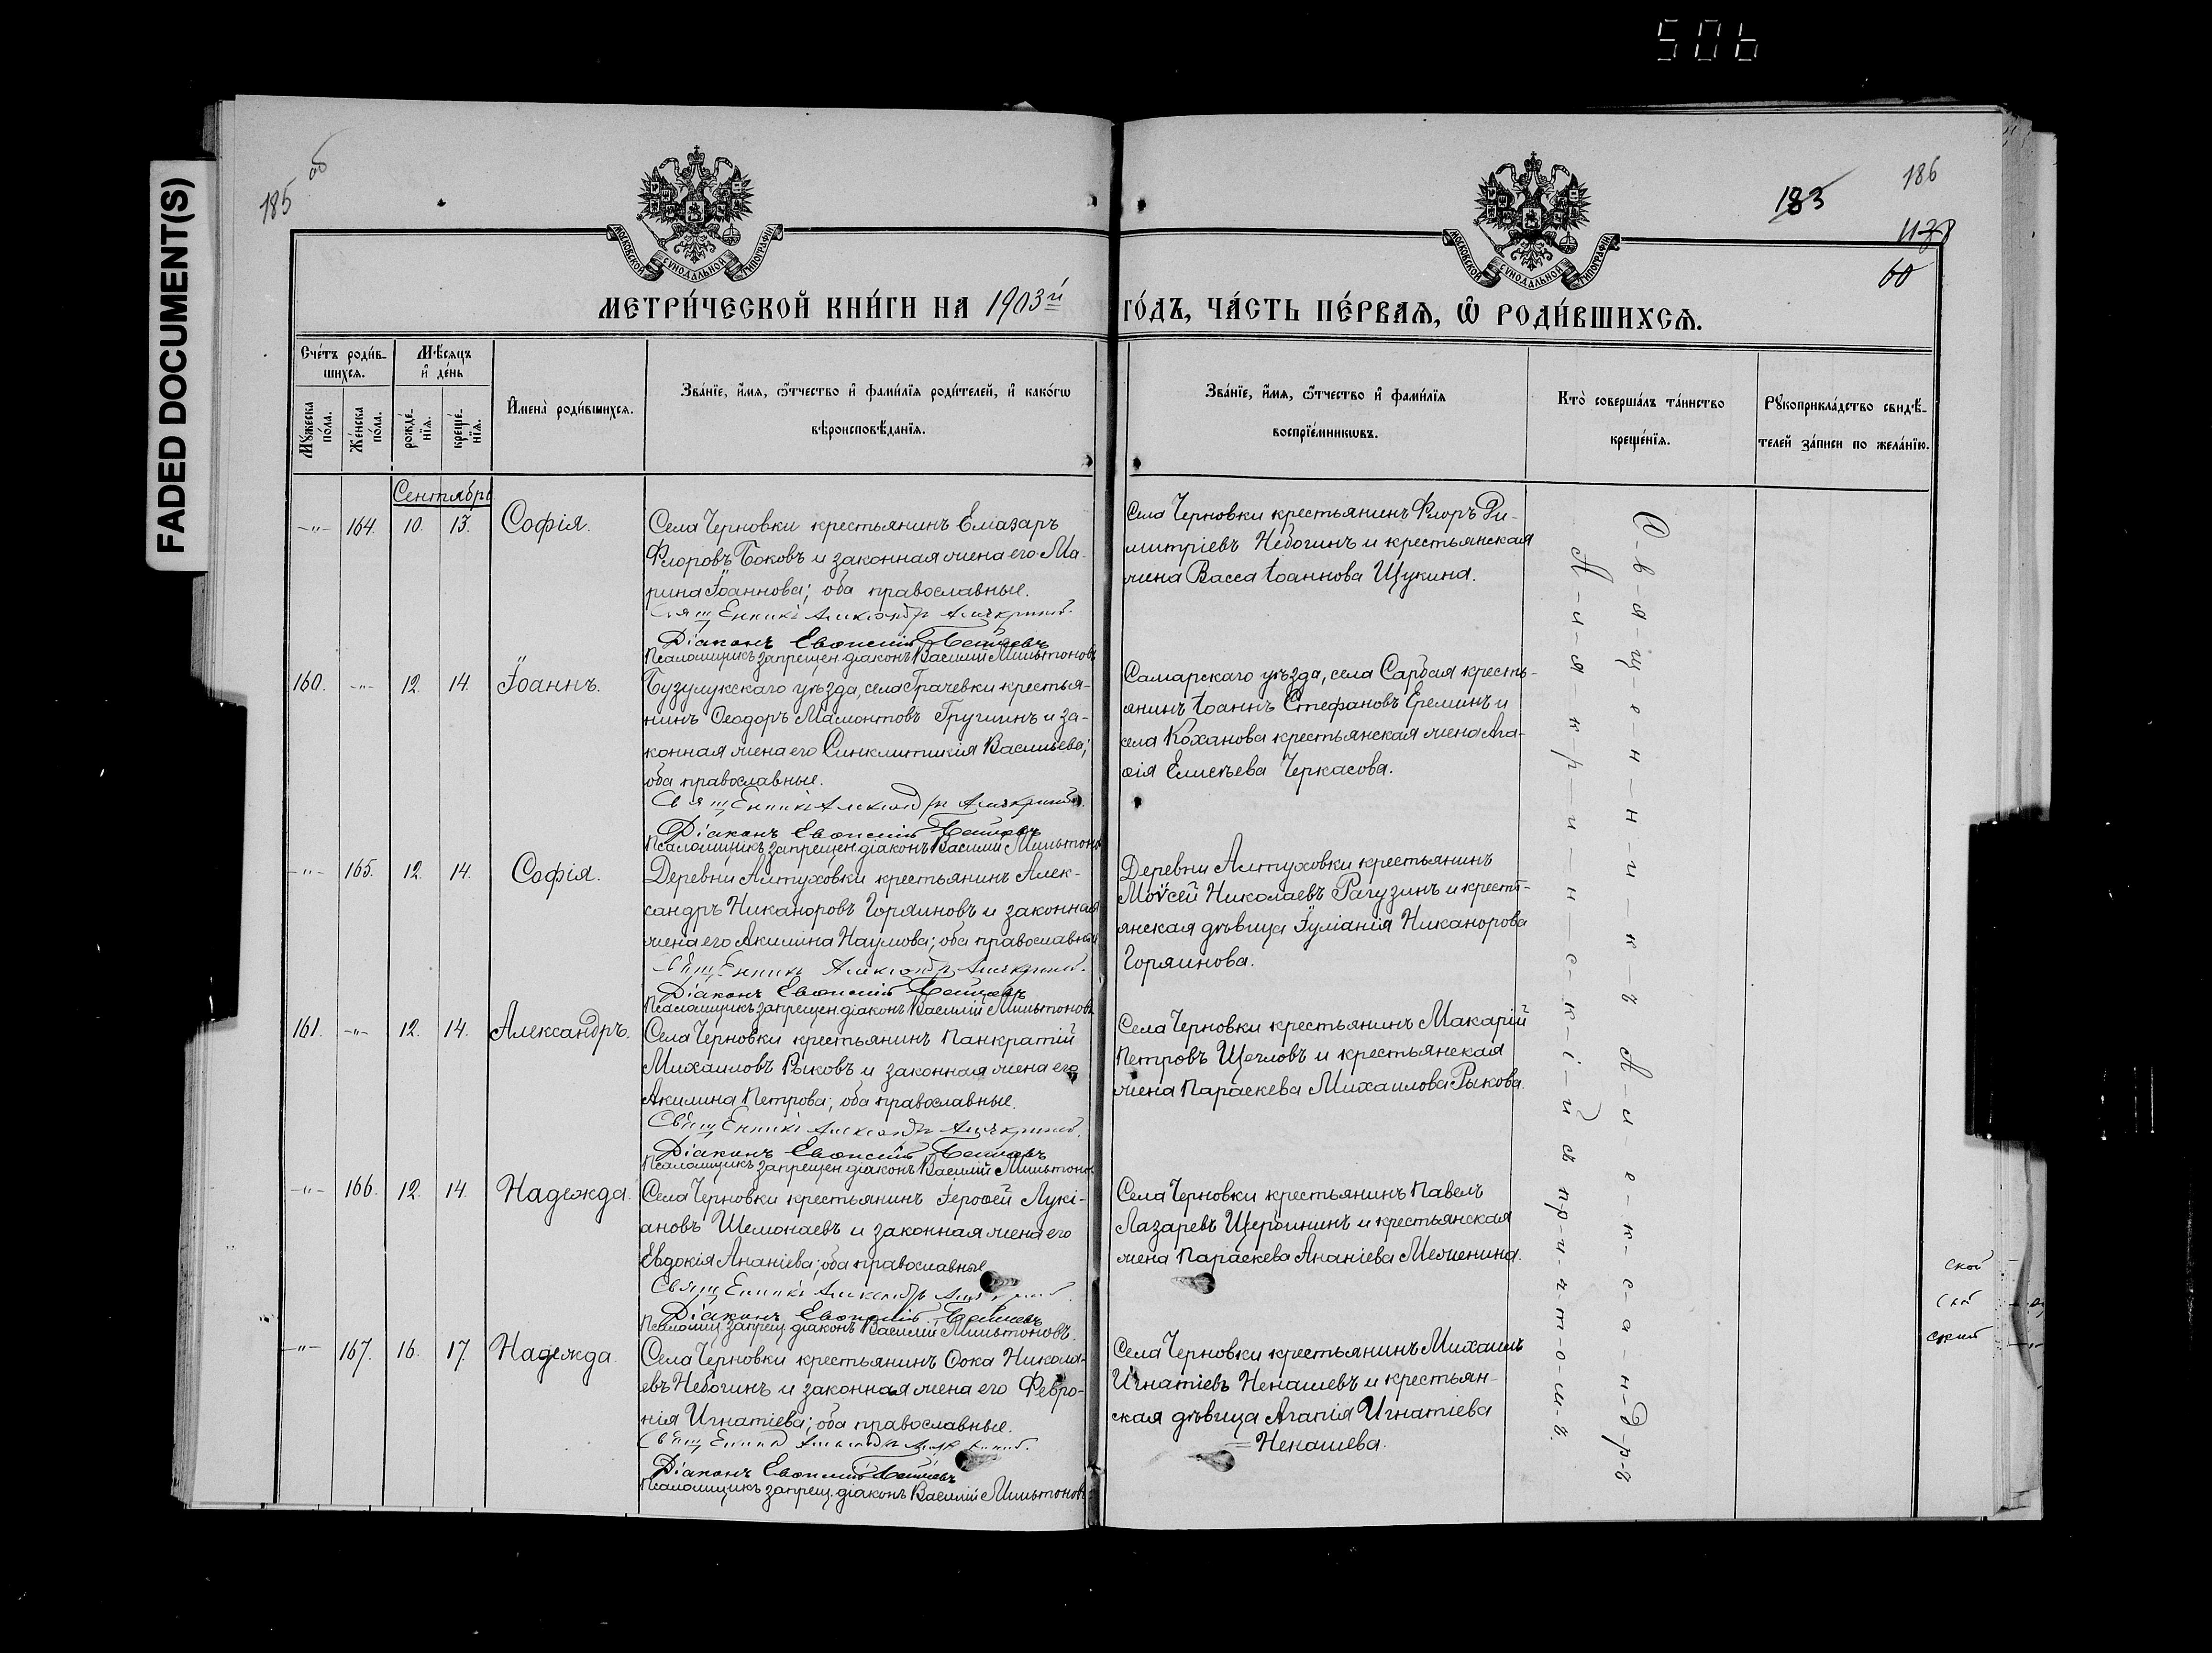 506
FADED DOCUMENT(S)
185 об
183
186
60
МОСКОВСКОЙ СѴНОДАЛЬНОЙ ТИПОГРАФІИ
МОСКОВСКОЙ СѴНОДАЛЬНОЙ ТИПОГРАФІИ
МЕТРИ́ЧЕСКОЙ КНИ́ГИ НА 1903й
ГО́ДЪ, ЧА́СТЬ ПЕ́РВАѦ, Ѡ҆ РОДИ́ВШИХСѦ.
Сче́тъ роди́в-
шихсѧ.
Мꙋ́жеска
по́ла.
Же́нска
по́ла.
Мѣ́сяцъ
и҆ де́нь
рожде́-
нїѧ.
креще́-
нїѧ.
И҆мена̀ роди́вшихсѧ.
Зва́нїе, и҆́мѧ, ѻ҆́тчество и҆ фами́лїѧ роди́телей, и҆ како́гѡ
вѣроисповѣ́данїѧ.
Зва́нїе, и҆́мѧ, ѻ҆́тчество и҆ фами́лїѧ
воспрїе́мникѡвъ.
Кто̀ соверша́лъ та́инство
креще́нїѧ.
Рꙋкоприкла́дство свидѣ́-
телей за́писи по жела́нїю.
Сентябрь
-"- 164. 10. 13. Софія.
Села Черновки крестьянинъ Елазаръ
Флоровъ Боковъ и законная жена его Ма-
рина Іоаннова; оба православные.
Священникъ Александръ
Діаконъ Евѳимій
Псаломщикъ запрещен. діаконъ Василій Мильтоновъ
Села Черновки крестьянинъ Флоръ Ди-
митріевъ Небогинъ и крестьянская
жена Васса Іоаннова Щукина.
160. -"- 12. 14. Іоаннъ.
Бузулукскаго уѣзда, села Грачевки крестья-
нинъ Ѳеодоръ Мамонтовъ Грушинъ и за-
конная жена его Синклитикія Васильева;
оба православные.
Священникъ Александръ
Діаконъ Евѳимій
Псаломщикъ запрещен. діаконъ Василій Мильтоновъ
Самарскаго уѣзда, села Сарбая кресть-
янинъ Іоаннъ Стефановъ Ереминъ и
села Коханова крестьянская жена Ага-
ѳія Елисѣева Черкасова.
-"- 165. 12. 14. Софія.
Деревни Алтуховки крестьянинъ Алек-
сандръ Никаноровъ Горяиновъ и законная
жена его Акилина Наумова; оба православные
Священникъ Александръ
Діаконъ Евѳимій
Псаломщикъ запрещен. діаконъ Василій Мильтоновъ
Деревни Алтуховки крестьянинъ
Моѵсей Николаевъ Рагузинъ и кресть-
янская дѣвица Іуліанія Никанорова
Горяинова.
161. -"- 12. 14. Александръ.
Села Черновки крестьянинъ Панкратій
Михаиловъ Рыковъ и законная жена его
Акилина Петрова; оба православные.
Священникъ Александръ
Діаконъ Евѳимій
Псаломщикъ запрещен. діаконъ Василій Мильтоновъ
Села Черновки крестьянинъ Макарій
Петровъ Щегловъ и крестьянская
жена Параскева Михаилова Рыкова.
-"- 166. 12. 14. Надежда.
Села Черновки крестьянинъ Іероѳей Лукі-
ановъ Шемонаевъ и законная жена его
Евдокія Ананіева; оба православные
Священникъ Александръ
Діаконъ Евѳимій
Псаломщ. запрещ. діаконъ Василій Мильтоновъ.
Села Черновки крестьянинъ Павелъ
Лазаревъ Щербининъ и крестьянская
жена Параскева Ананіева Меленина.
-"- 167. 16. 17. Надежда.
Села Черновки крестьянинъ Ѳока Никола-
евъ Небогинъ и законная жена его Февро-
нія Игнатіева; оба православные.
Священникъ Александръ
Діаконъ Евѳимій
Псаломщикъ запрещ. діаконъ Василій Мильтоновъ
Села Черновки крестьянинъ Михаилъ
Игнатіевъ Ненашевъ и крестьян-
ская дѣвица Агапія Игнатіева
= Ненашева.
С-в-я-щ-е-н-н-и-к-ъ А-л-е-к-с-а-н-д-р-ъ
съ пр-и-ч-т-о-м-ъ.
ской
ской
ский